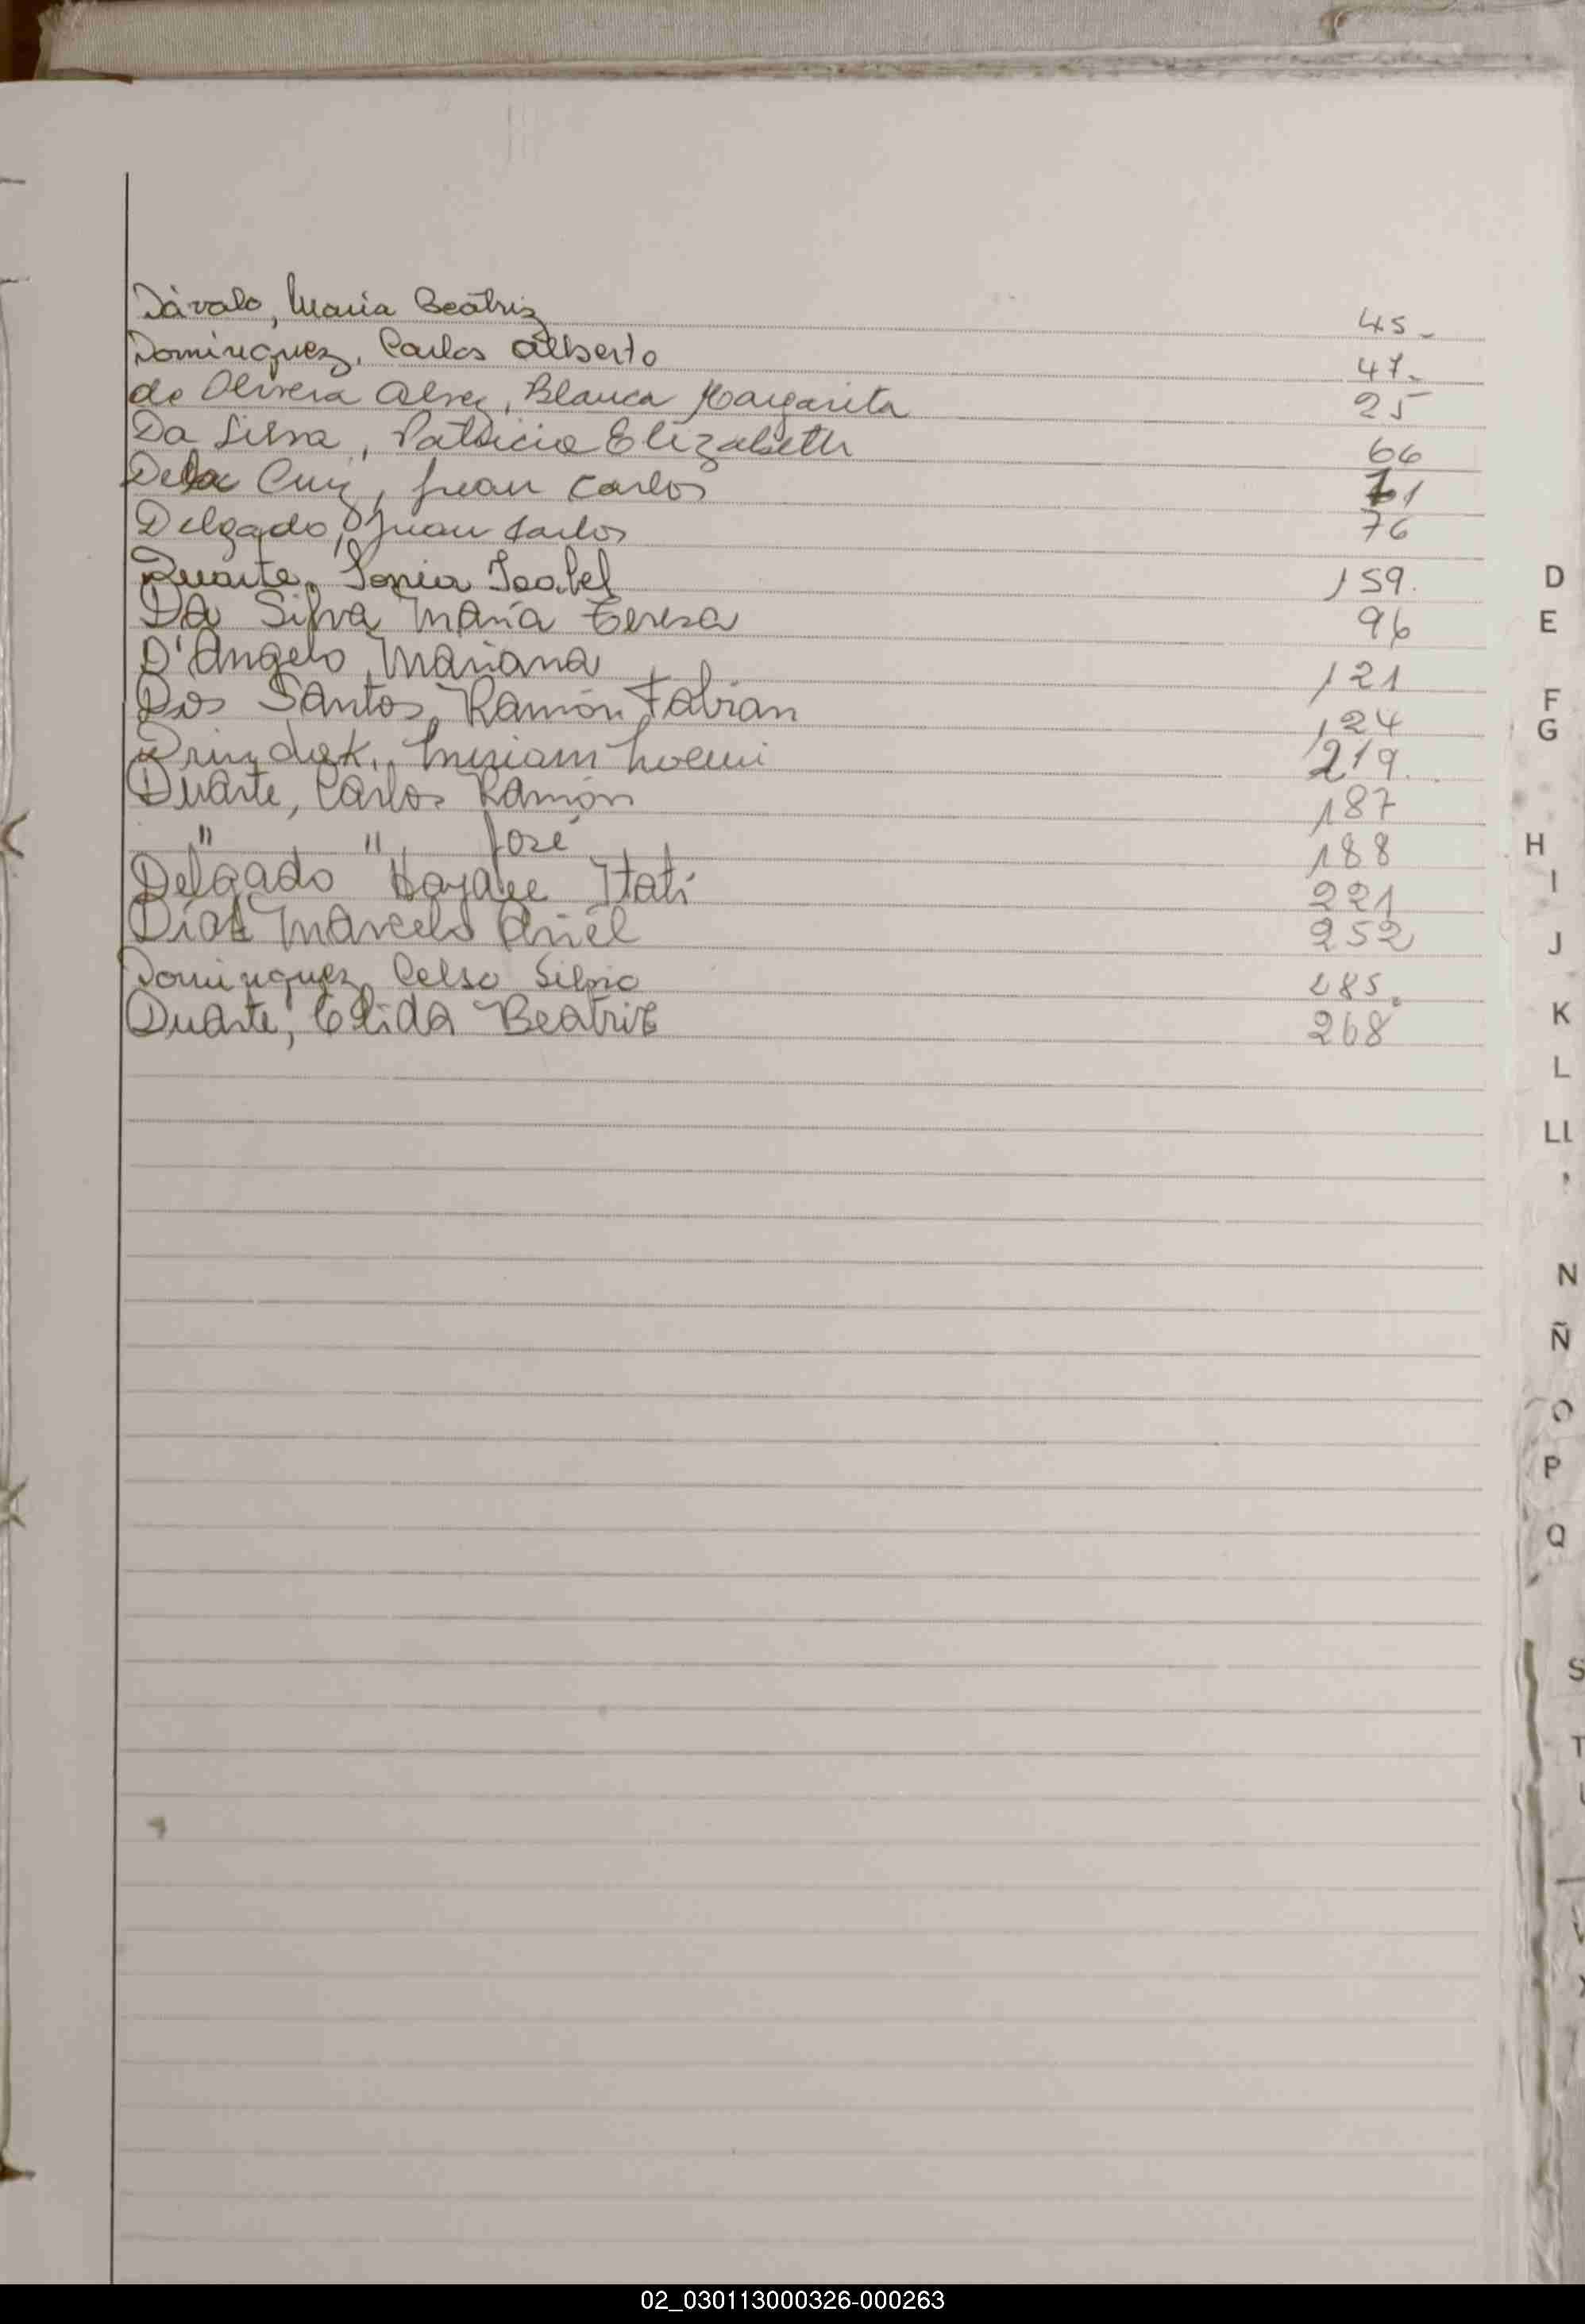 Dávalo, Maria Beatriz 45.-
Dominguez, Carlos Alberto 47.-
de Olivera Alvez, Blanca Margarita 25
Da Silva, Patricia Elizabeth 66
De la Cruz, Juan Carlos
Delgado, Juan Carlos 76
Duarte, Sonia Isabel 159.
Da Silva María Teresa 96
D'Angelo, Mariana 121
Dos Santos, Ramón Fabian 124
Miriam Noemi 219.
Duarte, Carlos Ramón 187
" " José 188
Delgado Itatí 221
Días Marcelo Ariel 252
Dominguez, Celso Silvio 285.
Duarte, Elida Beatriz 268
D
E
F
G
H
I
J
K
L
LL
N
Ñ
O
P
Q
S
T
02_030113000326-000263